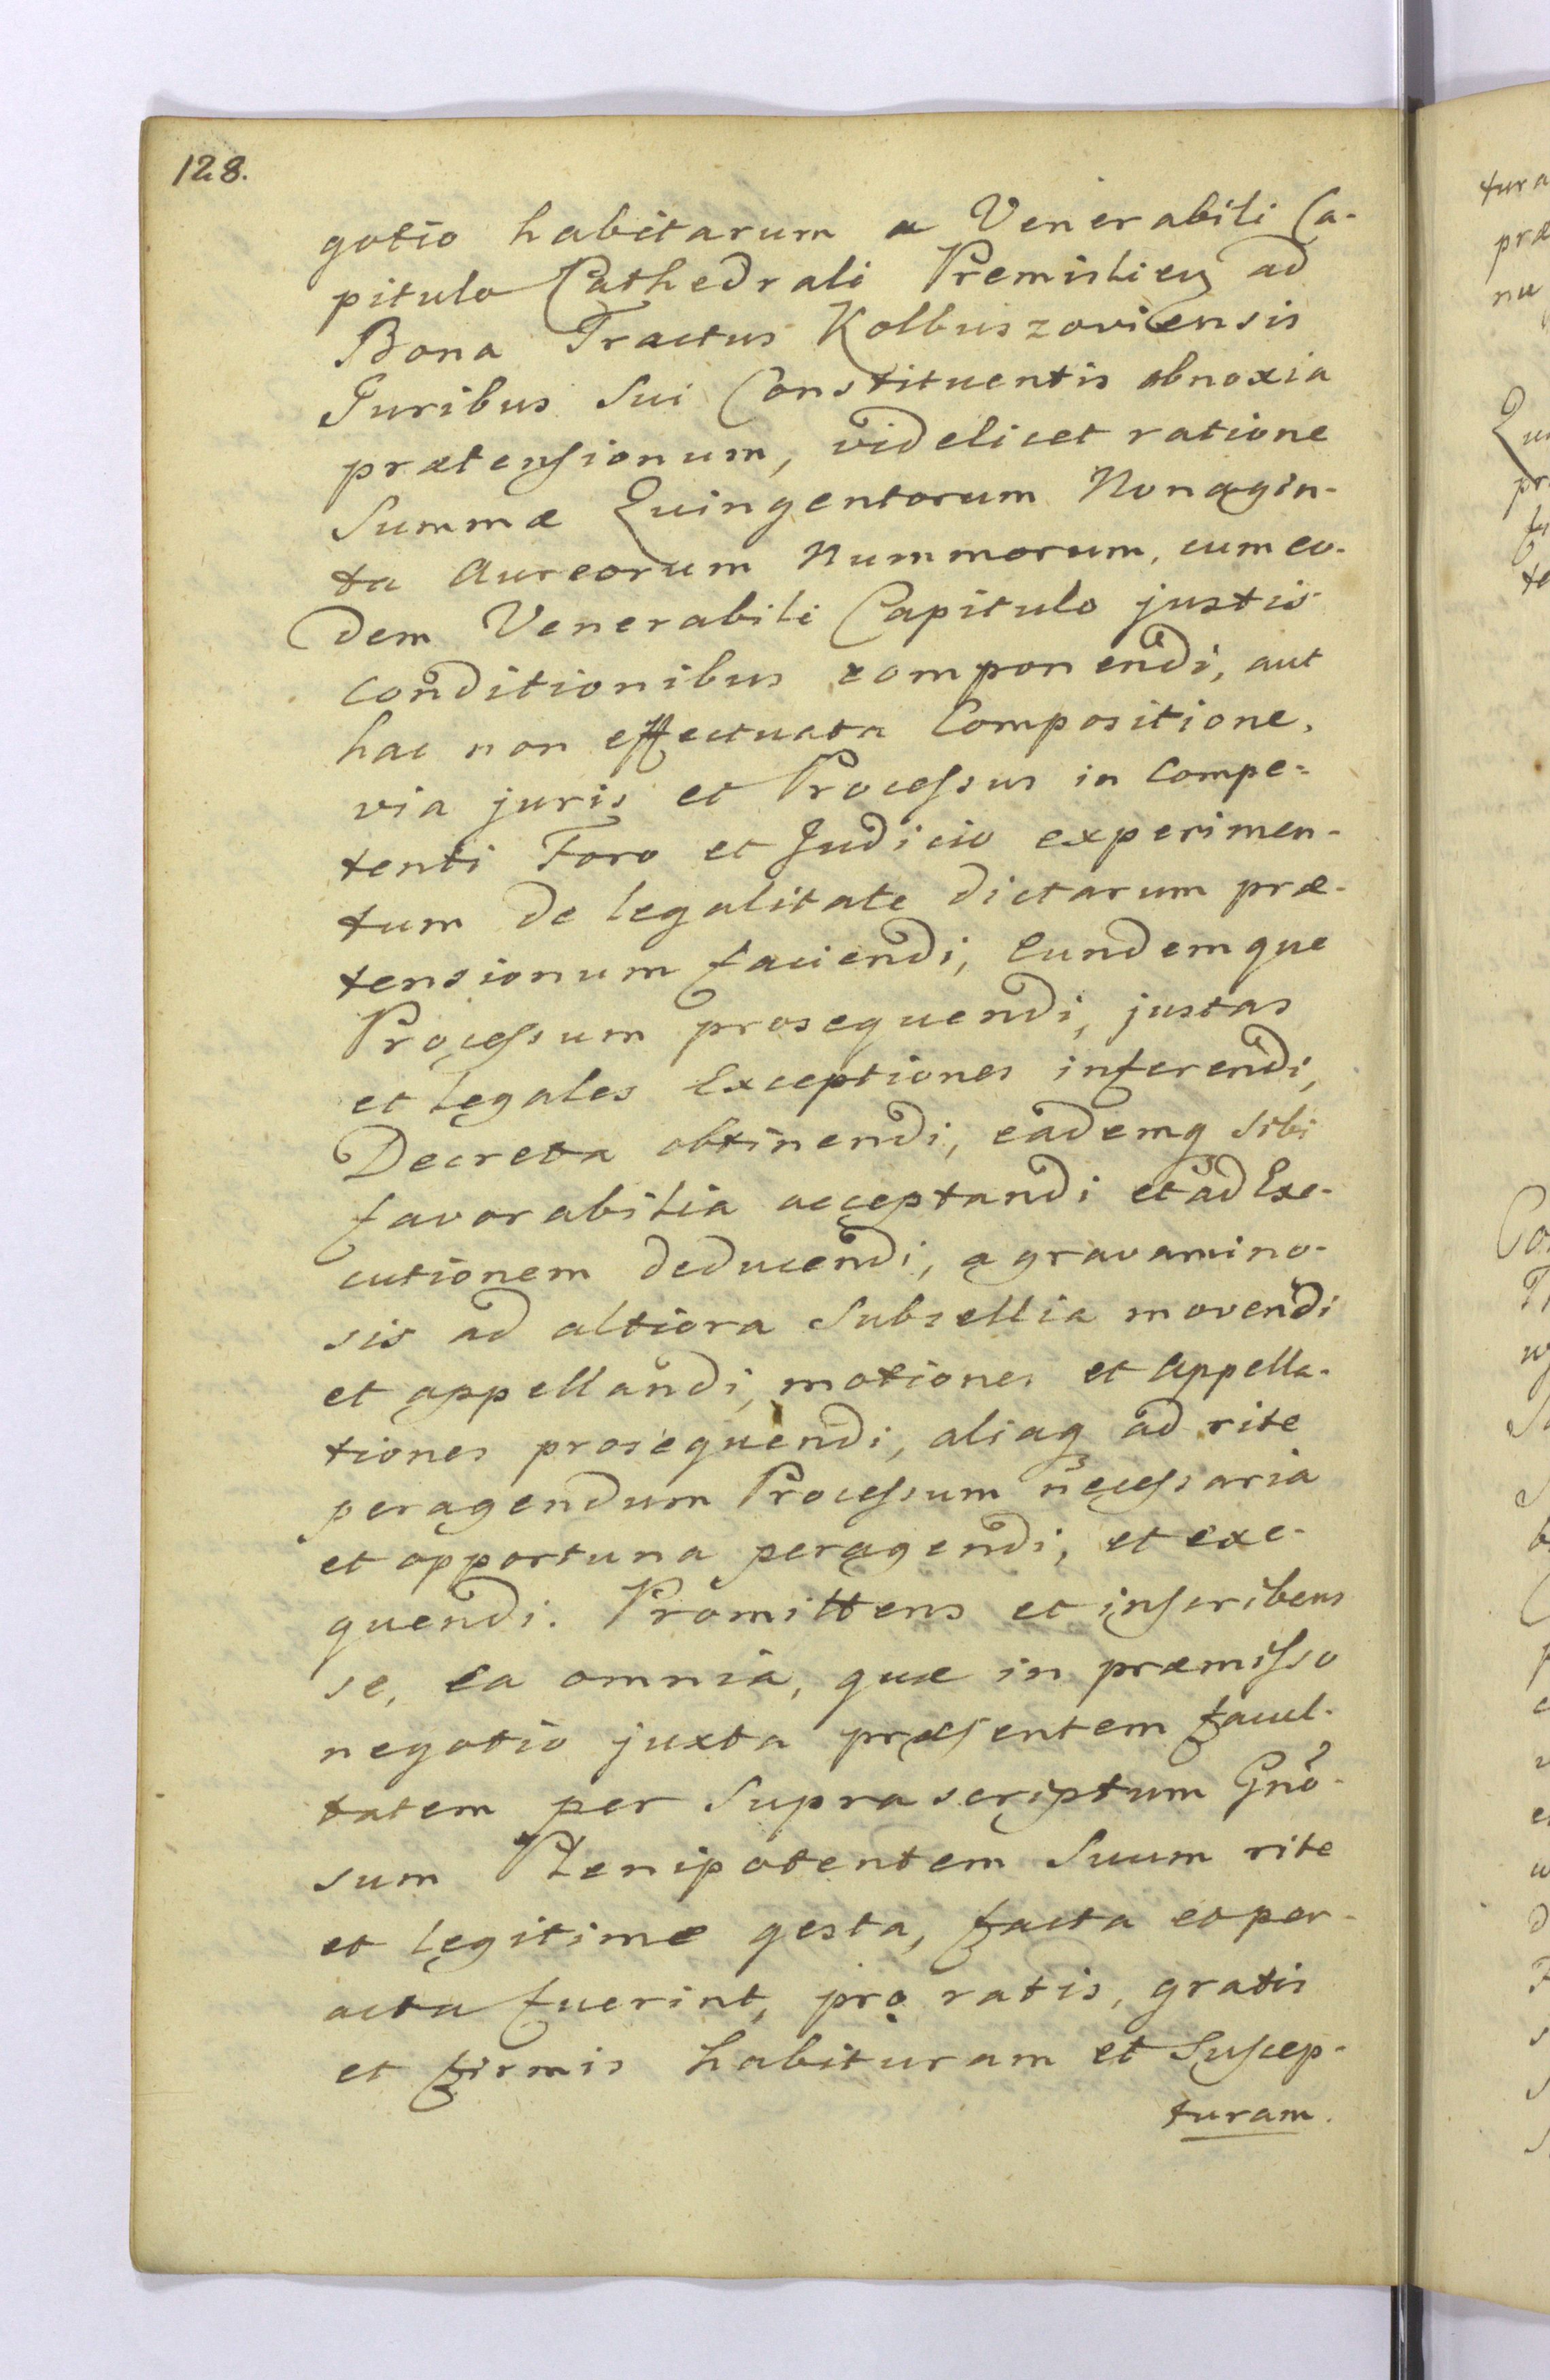 128.
gotio habitarum a Venerabili Ca-
pitulo Cathedrali Premislien ad
Bona Tractus Kolbuszoviensis
Juribus Sui Constituentis obnoxia
prætensionum, videlicet ratione
Summæ Quingentorum Nonagin-
ta Aureorum Nummorum, cum eo-
dem Venerabili Capitulo justis
conditionibus componendi, aut
hac non effectuata Compositione,
via juris et Processus in Compe=
tenti Foro et Judicio experimen-
tum de legalitate dictarum præ-
tensionum faciendi, Eundemque
Processum prosequendi, justas
et legales Exceptiones inferendi,
Decreta obtinendi, eademq sibi
favorabilia acceptandi et ad Exe-
cutionem deducendi, a gravamino-
sis ad altiora Subsellia movendi
et appellandi, motiones et Appella-
tiones prosequendi, aliaq ad rite
peragendum Processum necessaria
et opportuna peragendi, et exe-
quendi. Promittens et inscribens
se, ea omnia, quæ in præmisso
negotio juxta præsentem facul-
tatem per Suprascriptum Gño-
sum Plenipotentem Suum rite
et legitime gesta, facta et per-
acta fuerint, pro ratis, gratis
et firmis habituram et Suscep-
turam.